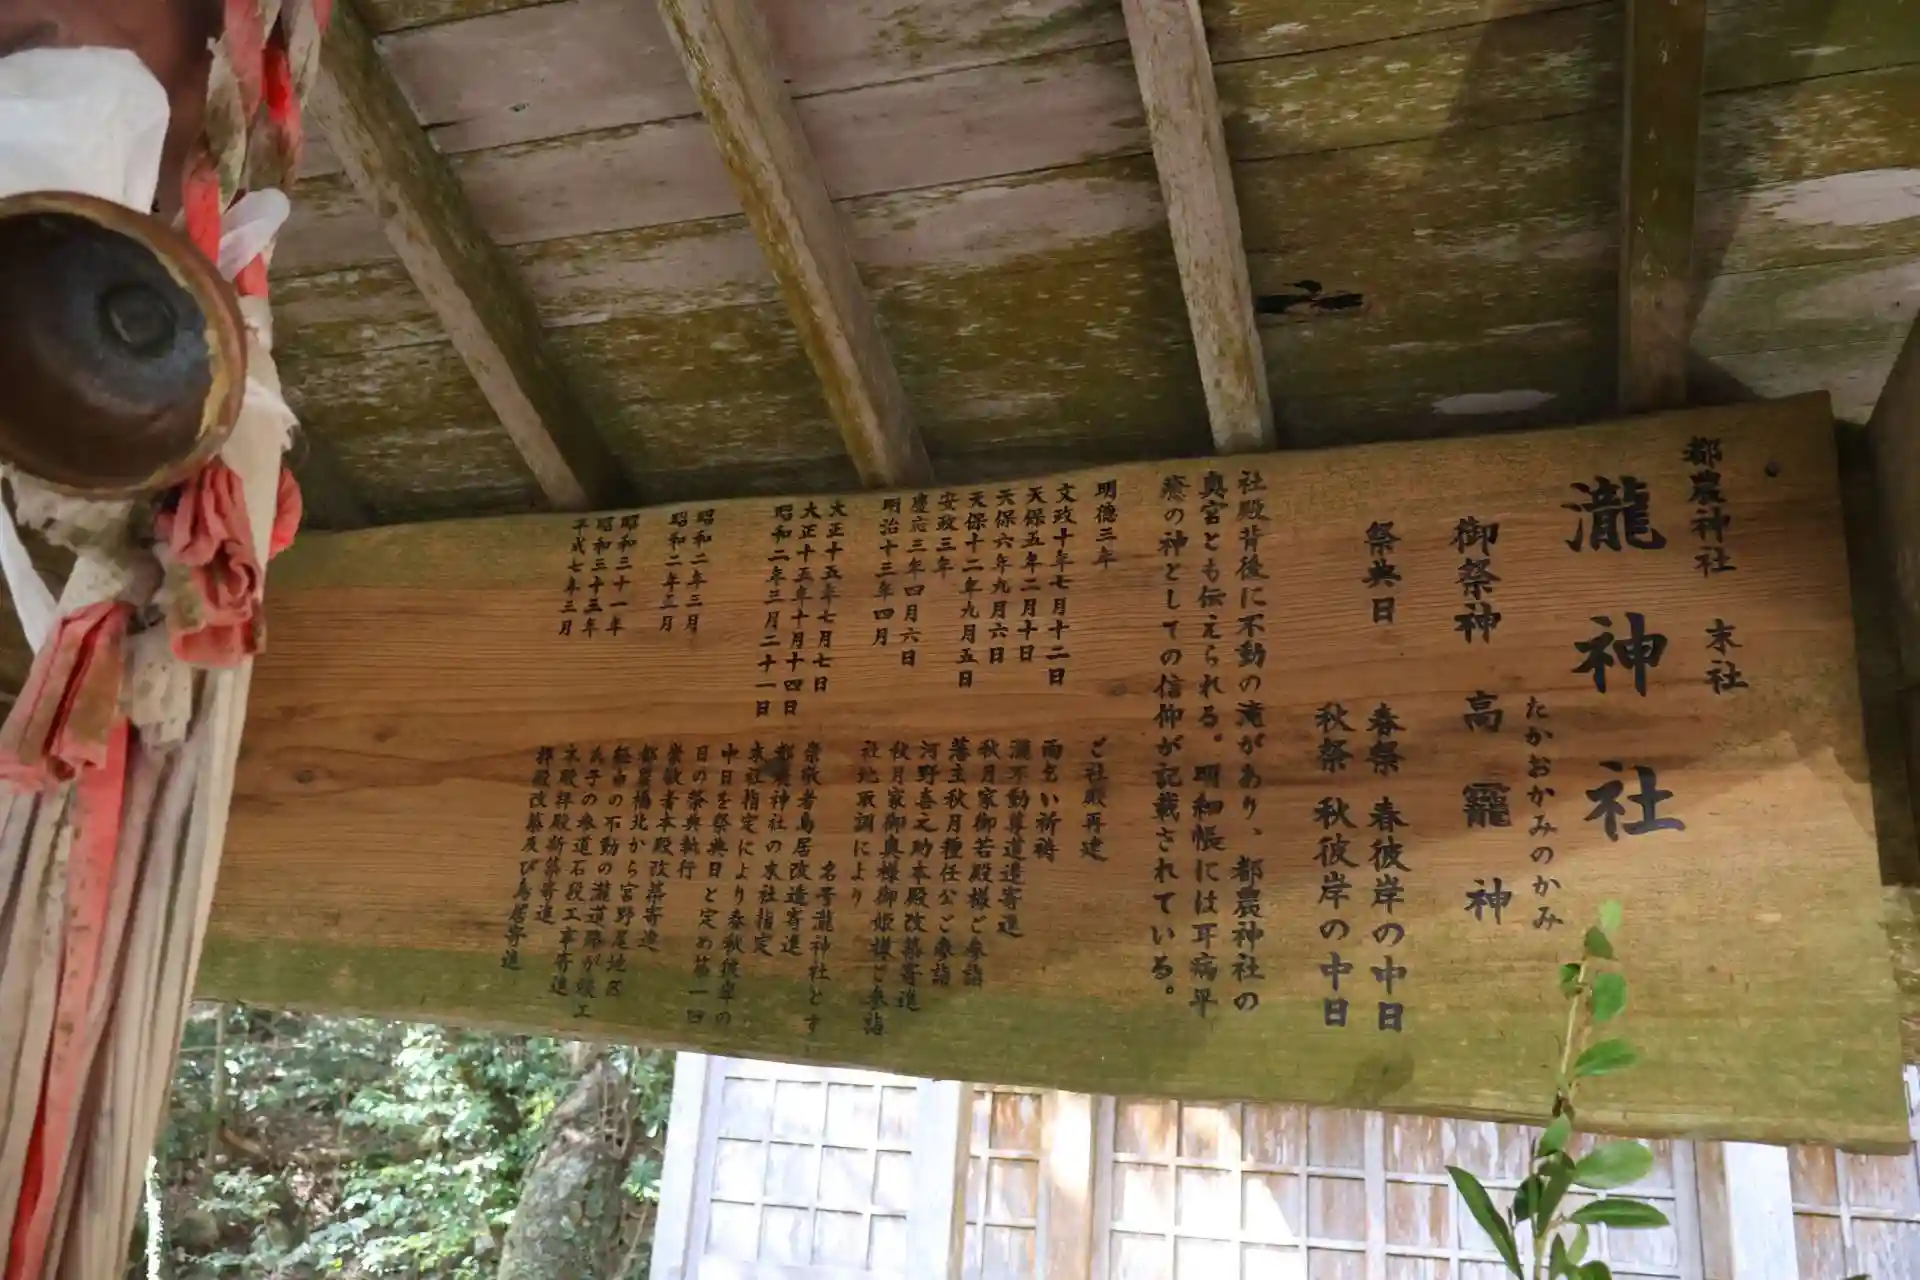 都農神社 末社
瀧神社
たかおかみのかみ
御祭神 高龗神
祭典日 春祭 春彼岸の中日
秋祭 秋彼岸の中日
社殿背後に不動の滝があり、都農神社の
奥宮とも伝えられる。明和帳には耳病平
癒の神としての信仰が記載されている。
明徳三年 ご社殿再建
文政十年七月十二日 雨乞い祈祷
天保五年二月十日 瀧不動尊道造寄進
天保六年九月六日 秋月家御若殿様ご参詣
天保十二年九月五日 藩主秋月種任公ご参詣
安政三年 河野喜之助本殿改築寄進
慶応三年四月六日 秋月家御奥様御姫様ご参詣
明治十三年四月 社地取調により
名号瀧神社とす
大正十五年七月七日 崇敬者鳥居改造寄進
大正十五年十月十四日 都農神社の末社指定
昭和二年三月二十一日 末社指定により春秋彼岸の
中日を祭典日と定め第一回
日の祭典執行
昭和二年三月 崇敬者本殿改築寄進
昭和二年三月 都農橋北から宮野尾地区
経由の不動の瀧道路が竣工
昭和三十一年 氏子の参道石段工事寄進
昭和三十三年 本殿拝殿新築寄進
平成七年三月 拝殿改築及び鳥居寄進